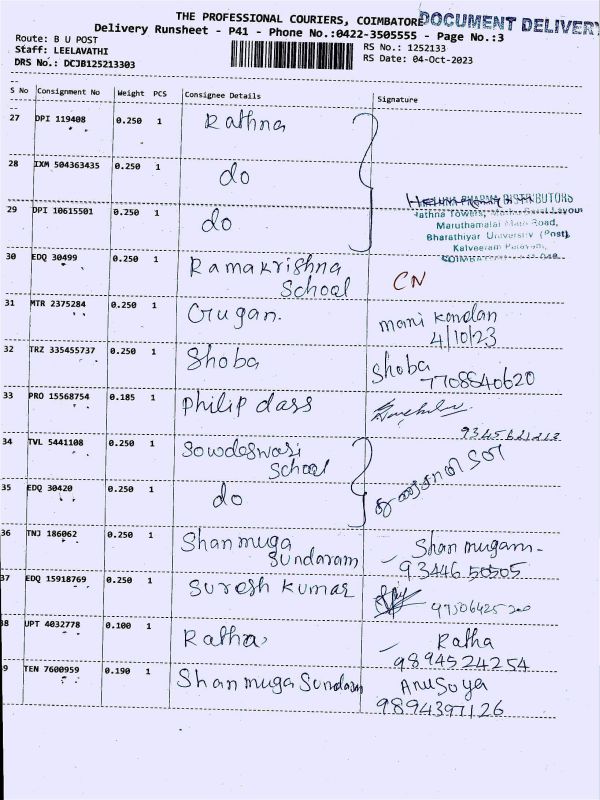 THE PROFESSIONAL COURIERS, COIMBATORE
DOCUMENT DELIVERY
Delivery Runsheet - P41 - Phone No.:0422-3505555 - Page No.:3
Route: B U POST
Staff: LEELAVATHI
DRS No.: DCJB125213303
RS No.: 1252133
RS Date: 04-Oct-2023
S No Consignment No Weight PCS Consignee Details Signature
27 DPI 119408 0.250 1 Rathna
28 IXM 504363435 0.250 1 do
29 DPI 10615501 0.250 1 do
PHARMA DISTRIBUTORS
Rathna Towers,
Maruthamalai Main Road,
Bharathiyar University (Post),
Kalveeram
30 EDQ 30499 0.250 1 Ramakrishna
School CN
31 MTR 2375284 0.250 1 Gugan. mani kandan
4/10/23
32 TRZ 335455737 0.250 1 Shoba Shoba
7708840620
33 PRO 15568754 0.185 1 Philip dass
34 TVL 5441108 0.250 1 Sowdeswari
School
35 EDQ 30420 0.250 1 do
36 TNJ 186062 0.250 1 Shanmuga Shanmugam-
Sundaram 93446 50505
37 EDQ 15918769 0.250 1 Suresh kumar
38 UPT 4032778 0.100 1 Ratha Ratha
9894524254
39 TEN 7600959 0.190 1 Shanmuga Sundaram Anusoya
9894397126